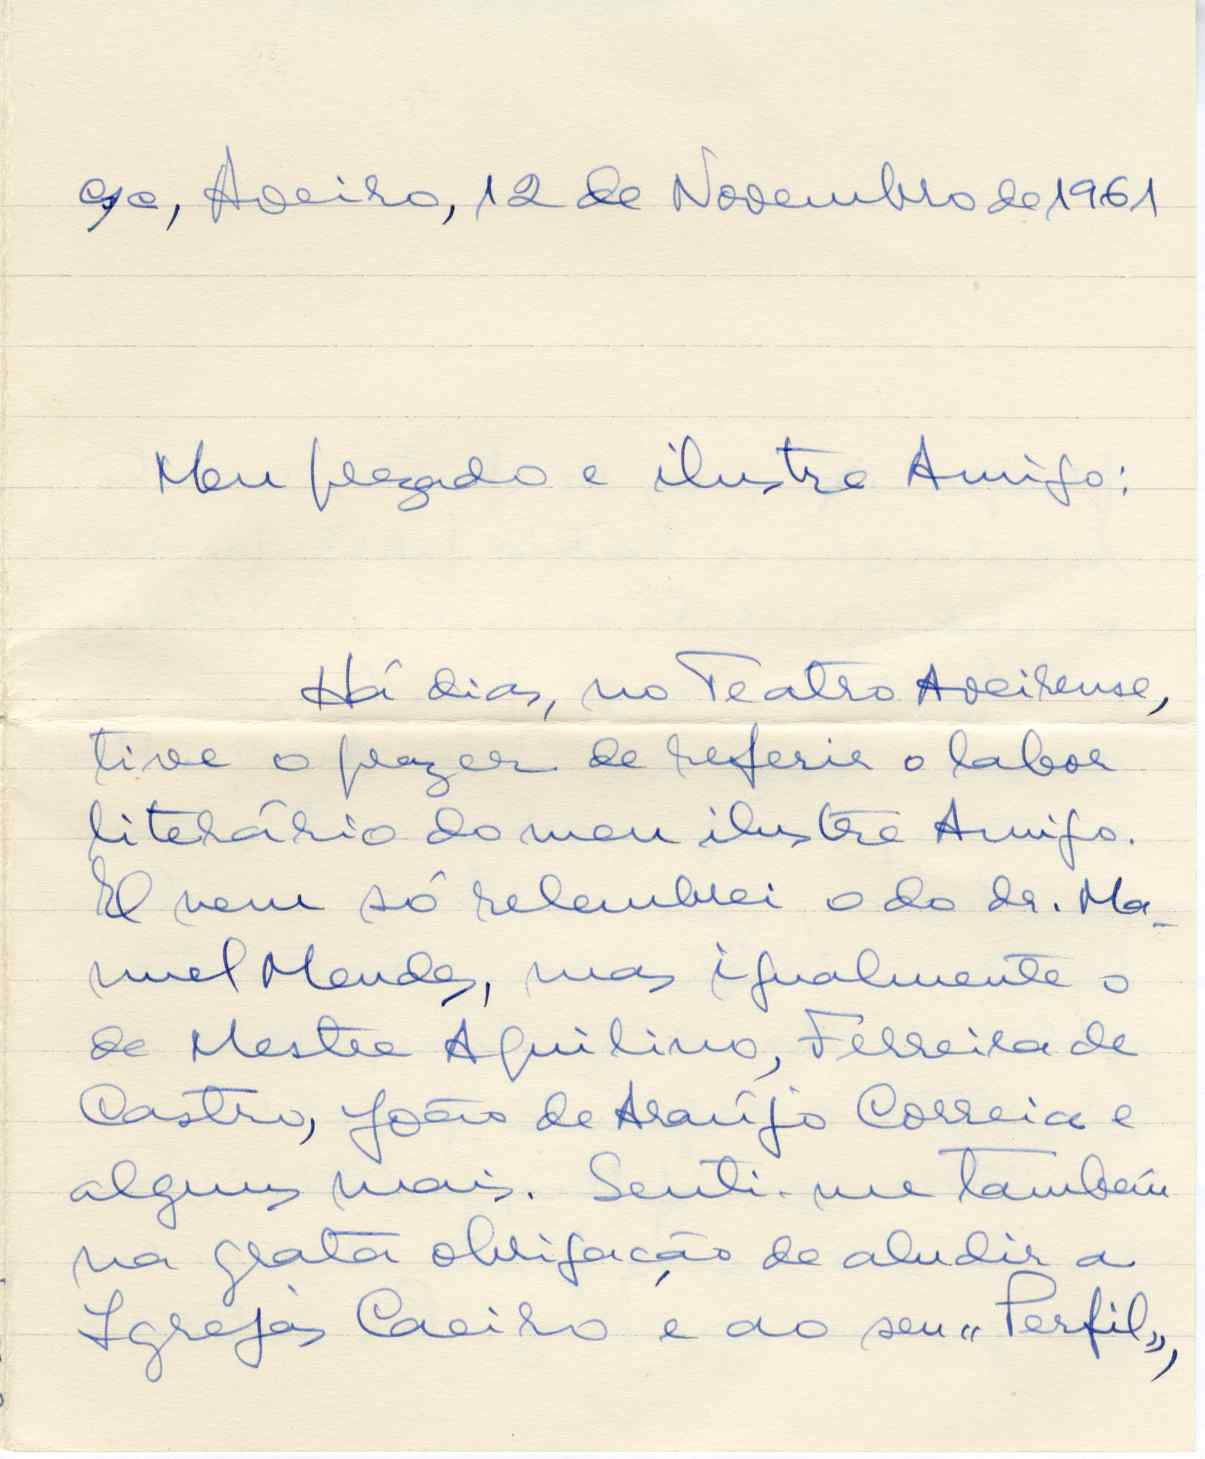 Aveiro, 12 de Novembro de 1961
Meu prezado e ilustre Amigo:
Há dias, no Teatro Aveirense,
tive o prazer de referir o labor
literário do meu ilustre Amigo.
E nem só relembrei o do dr. Ma-
nuel Mendes, mas igualmente o
de Mestre Aquilino, Ferreira de
Castro, João de Araújo Correia e
alguns mais. Senti-me também
na grata obrigação de aludir a
Igrejas Caeiro e ao seu «Perfil»,